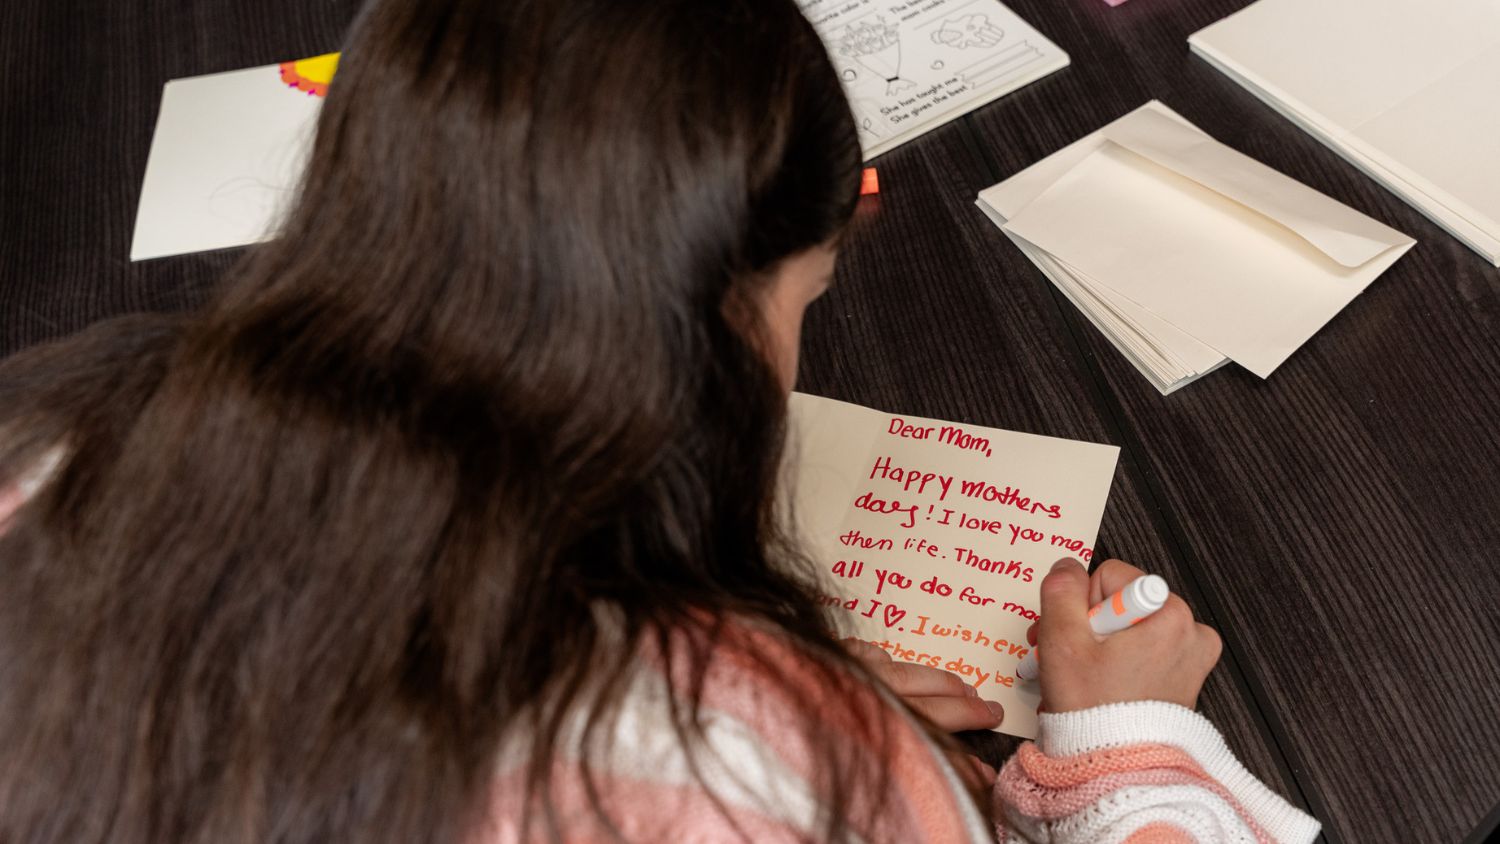 The best
mom cooks
She has taught me
She gives the best
Dear Mom,
Happy mothers
day! I love you more
then life. Thanks
all you do for
and I ♡. I wish
mothers day be